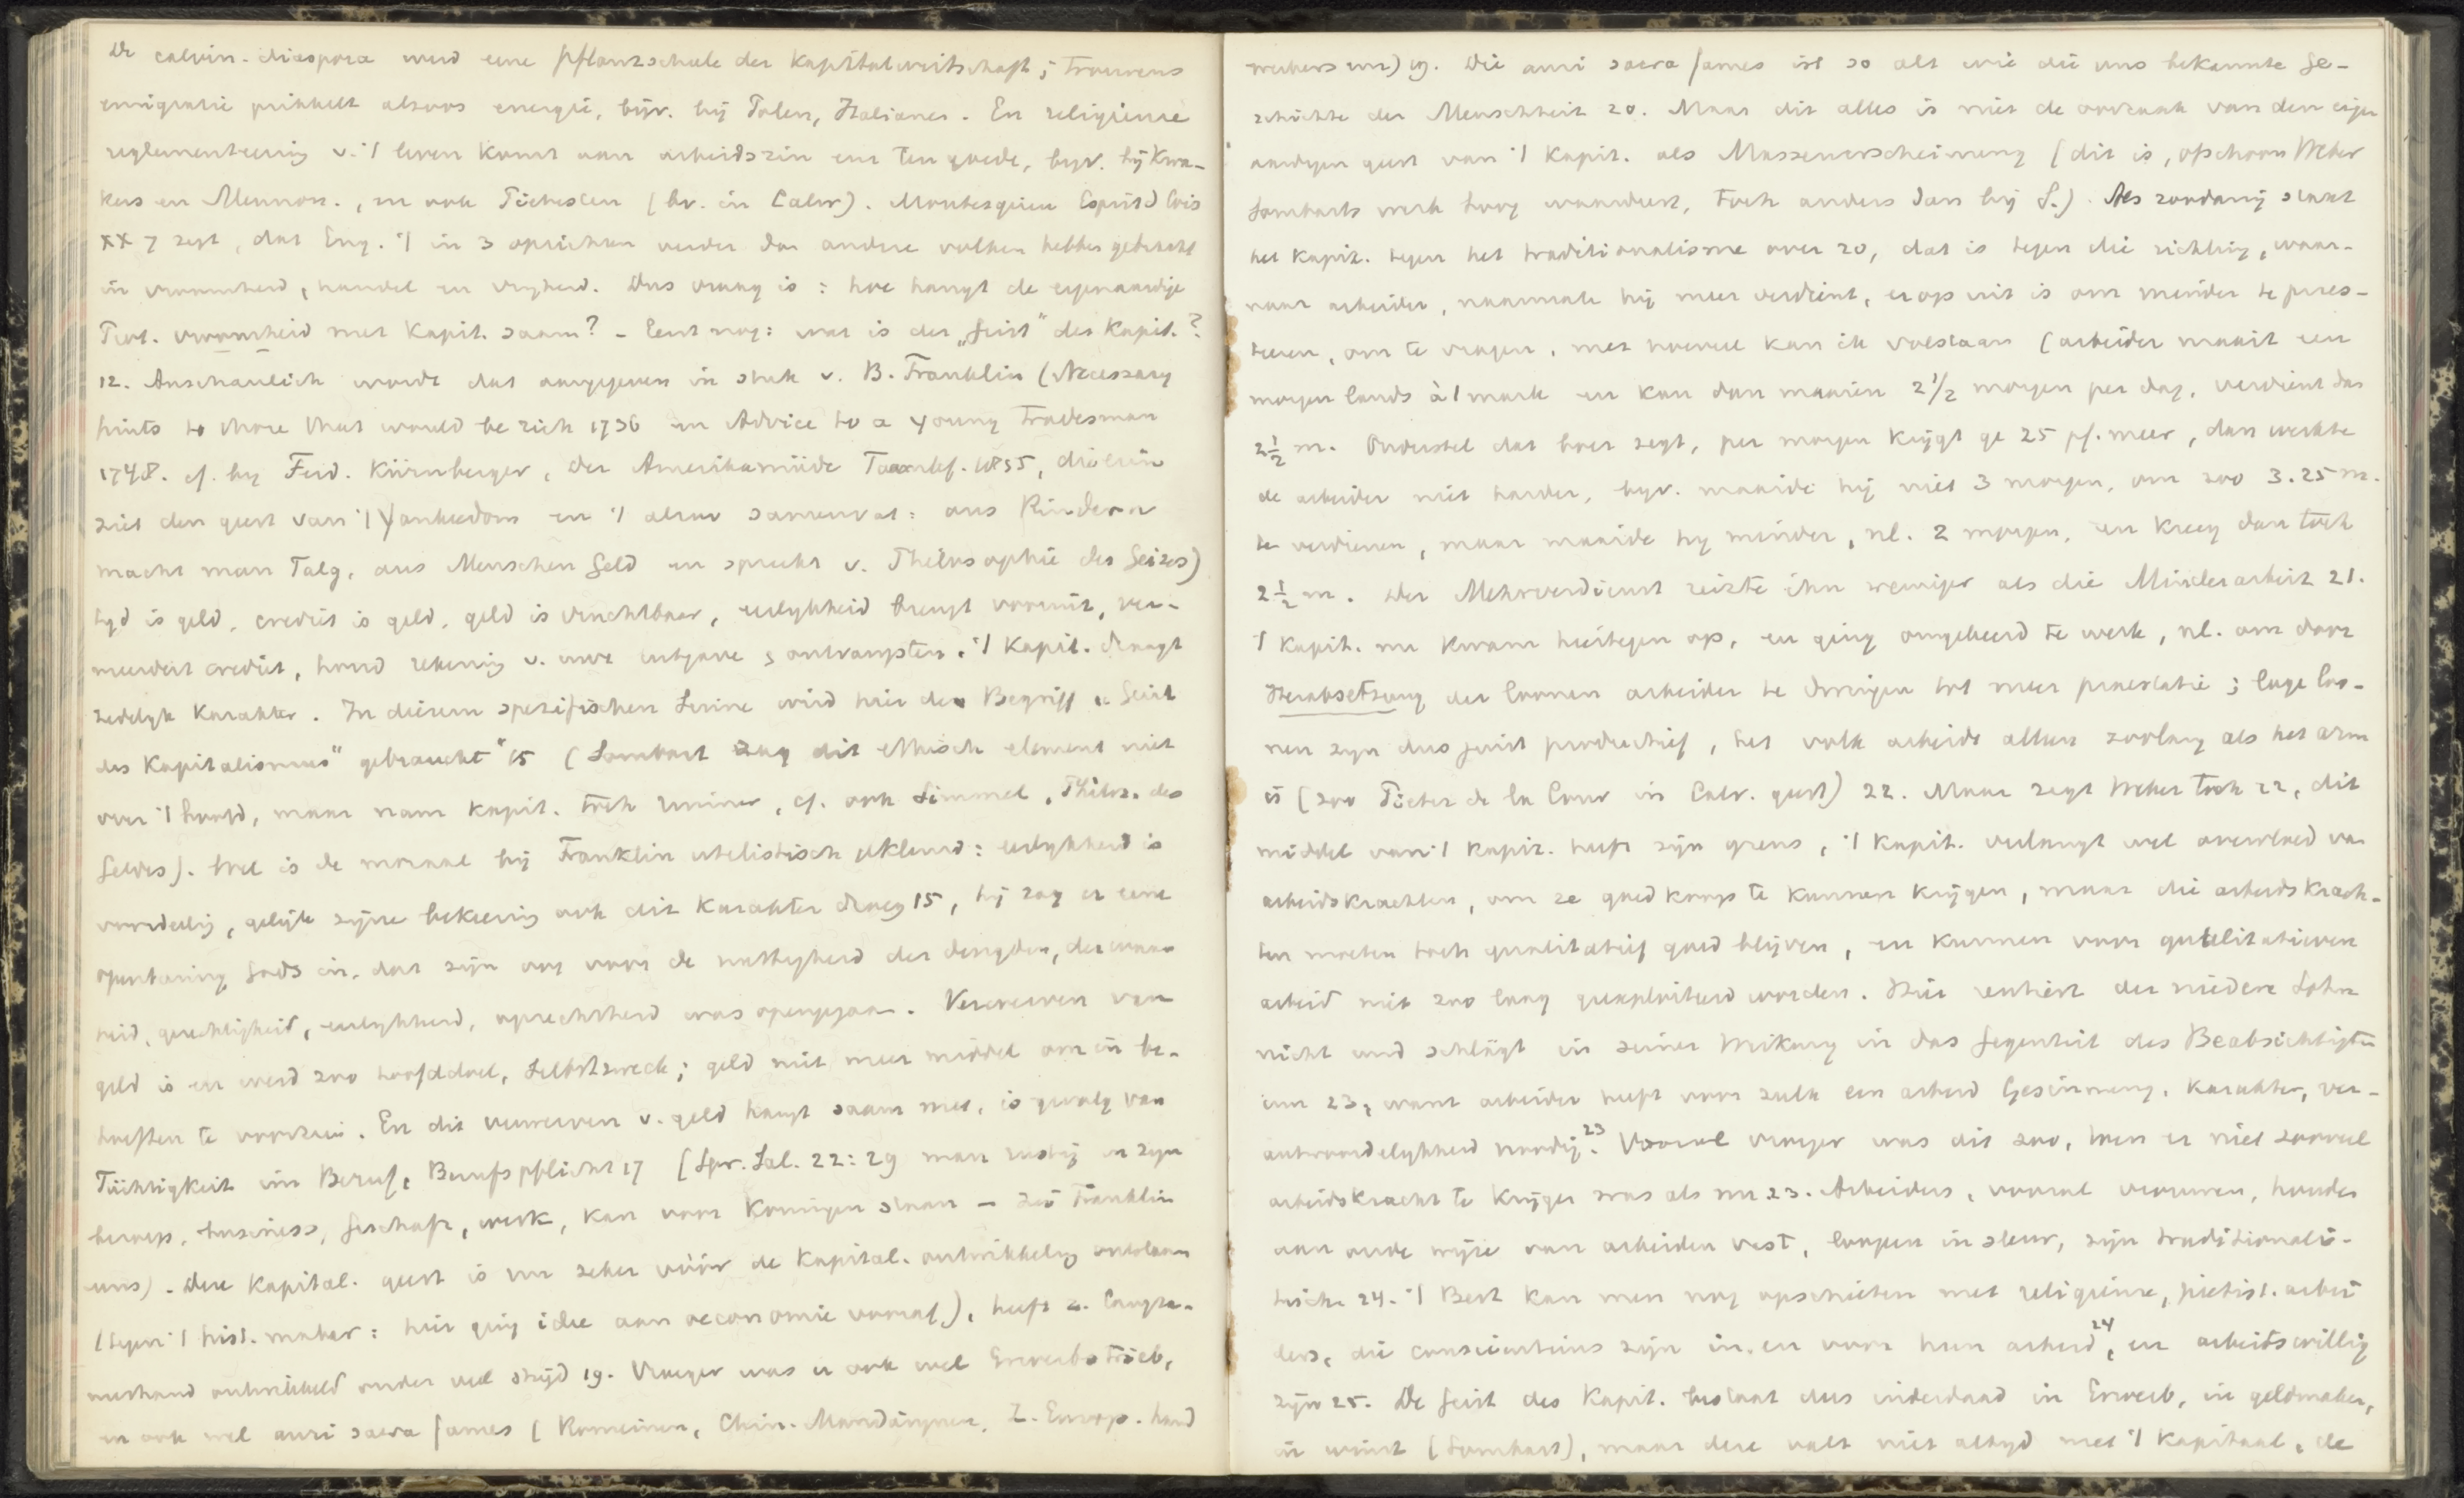 De calvin. diaspora werd eene Pflanzschule der Kapitalwirtschaft; trouwens
emigratie prikkelt alsoos energie, bijv. bij Polen, Italianen. En religieuse
reglementeering v. 't leven komt aan arbeidszin enz ten goede, byv. bij Kwa-
kers en Mennon., en ook Pietisten (bv. in Calw). Montesquieu Esprit d lois
XX 7 zegt, dat Eng. 't in 3 opzichten verder dan andere volken hebben gebracht
in vroomheid, handel en vryheid. Dus vraag is: hoe hangt de eigenaardige
Prot. vroomheid met Kapit. saam? - Eerst nog: wat is der „Geist" des Kapit.?
12. Anschaulich wordt dat aangegeven in stuk v. B. Franklin (Necessary
hints to those that would be rich 1736 en Advice to a young tradesman
1748. cf. by Ferd. Kürnberger, der Amerikamüde 1855, die erin
ziet den geest van 't Yankeedom en 't aldus samenvat: aus Rindern
macht man Talg, aus Menschen Geld en spreekt v. Philosophie des Geizes)
tyd is geld, crediet is geld, geld is vruchtbaar, eerlykheid brengt vooruit, ver-
meerdert crediet, houd rekening v. uwe uitgave & ontvangsten. 't Kapit. draagt
zedelyk karakter. In diesem spezifischen Sinne wird hier der Begriff „Geist
des Kapitalismus" gebraucht" 15 (Sombart zag dit ethisch element niet
over 't hoofd, maar nam kapit. toch ruimer, cf. ook Simmel, Philos. des
Geldes). Wel is de moraal bij Franklin utilistisch gekleurd: eerlykheid is
voordeelig, gelijk zijne bekeering ook dit karakter droeg 15, hij zag er eene
openbaring Gods in, dat zijn oog voor de nuttigheid der deugden, der waar
heid, gerechtigheid, eerlykheid, oprechtheid was opengegaan. Verwerven van
geld is en werd zoo hoofddoel, Selbstzweck; geld niet meer middel om in be-
hoeften te voorzien. En dit verwerven v. geld hangt saam met, is gevolg van
Tüchtigkeit im Beruf, Berufspflicht 17 (Spr. Sal. 22:29 man rustig in zijn
beroep, business, Geschäft, werk, kan voor Koningen staan - zei Franklin
. Deze Kapital. geest is nu zeker vóór de Kapital. ontwikkeling ontstaan
(tegen 't hist. mater: hier ging idee aan oeconomie vooraf), heeft z. langza-
merhand ontwikkeld onder veel strijd 19. Vroeger was er ook wel Erwerbstrieb,
en ook wel auri sacra fames (Romeinen, Chin. Mandarijnen, Z. Europ. hand
werkers enz) 19. Die auri sacra fames ist so alt wie die uns bekannte Ge-
schichte der Menschheit 20. Maar dit alles is niet de oorzaak van den eigen
aardigen geest van 't Kapit. als Massenerscheinung (dit is, ofschoon Weber
Sombarts werk hoog waardeert, toch anders dan bij S.). Als zoodanig staat
het Kapit. tegen het traditionalisme over 20, dat is tegen die richting, waar-
naar arbeider, naarmate hij meer verdient, erop uit is om minder te pres-
teeren, om te vragen, met hoeveel kan ik volstaan (arbeider maait een
morgen lands à 1 mark en kan dan maaien 2 1/2 morgen per dag, verdient dan
2 1/2 m. Onderstel dat boer zegt, per morgen krijgt ge 25 pf. meer, dan werkte
de arbeider niet harder, byv. maaide hij niet 3 morgen, om zoo 3.25 m.
te verdienen, maar maaide hy minder, nl. 2 morgen, en kreeg dan toch
2 1/2 m. Der Mehrverdienst reizte ihn weniger als die Minderarbeit 21.
't Kapit. nu kwam hiertegen op, en ging omgekeerd te werk, nl. om door
Herabsetzung der loonen arbeider te dwingen tot meer praestatie; lage loo-
nen zijn dus juist productief, het volk arbeidt alleen zoolang als het arm
is (zoo Pieter de la Cour in Calv. geest) 22. Maar zegt Weber toch 22, dit
middel van 't Kapit. heeft zijn grens, 't Kapit. verlangt wel overvloed van
arbeidskrachten, om ze goedkoop te kunnen krijgen, maar die arbeidskrach-
ten moeten toch qualitatief goed blijven, en kunnen voor qualitatieven
arbeid niet zoo lang geexploiteerd worden. Hier rentiert der niedere Lohn
nicht und schlägt in seiner Wirkung in das Gegenteil des Beabsichtigten
um 23, want arbeider heeft voor zulk een arbeid Gesinnung, karakter, ver-
antwoordelykheid noodig 23. Vooral vroeger was dit zoo, toen er niet zooveel
arbeidskracht te krijgen was als nu 23. Arbeiders, vooral vrouwen, houden
aan oude wijze van arbeiden vast, loopen in sleur, zijn traditionalis-
tisch 24. 't Best kan men nog opschieten met religieuse, pietist. arbei
ders, die conscientieus zijn in en voor hun arbeid 24, en arbeitswillig
zijn 25. De Geist des Kapit. bestaat dus inderdaad in Erwerb, in geldmaken,
in winst (Sombart), maar deze valt niet altyd met 't Kapitaal, de